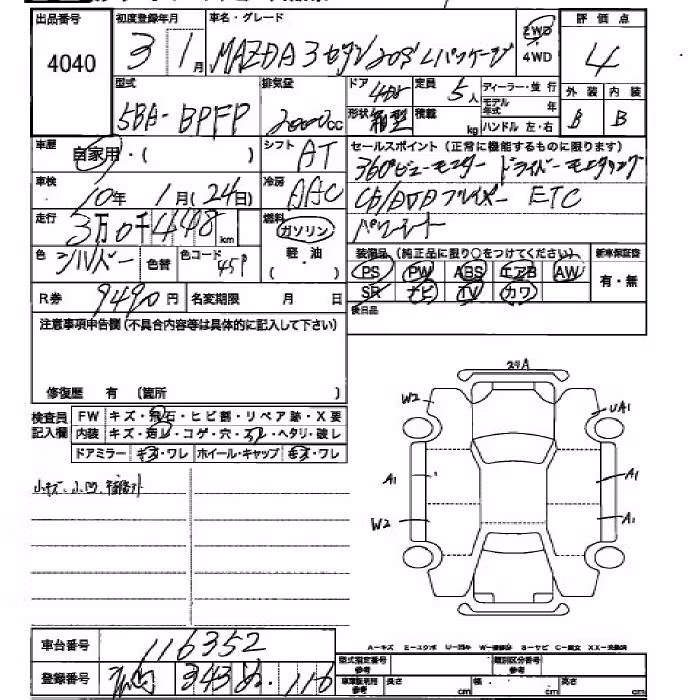 出品番号 初度登録年月 車名・グレード 評価点
4040 3 1月 MAZDA3 セダン 20S Lパッケージ 2WD・4WD 4
型式 排気量 ドア 4枚 定員 5人 ディーラー・並行 外装 内装
5BA-BPFP 2000cc 形状 箱型 積載 kg モデル年式 年 B B
ハンドル 左・右
車歴 自家用・( ) シフト AT セールスポイント(正常に機能するものに限ります)
360°ビューモニター ドライバーモニタリング
車検 10年 1月(24日) 冷房 AAC CD/DVDプレイヤー ETC
走行 3万0千448km 燃料 ガソリン 軽・油 ( ) パワーシート
色 シルバー 色替 色コード 45P 装備品(純正品に限り○をつけてください) 新車保証書
PS PW ABS エアB AW 有・無
R券 9490円 名変期限 月 日 SR ナビ TV カワ
後日品
注意事項申告欄(不具合内容等は具体的に記入して下さい)
修復歴 有 (箇所 )
検査員記入欄 FW キズ・飛石・ヒビ割・リペア跡・X要
内装 キズ・汚レ・コゲ・穴・スレ・ヘタリ・破レ
ドアミラー キズ・ワレ ホイール・キャップ キズ・ワレ
小キズ、小凹
24A
W2 UA1
A1 A1
W2 A1
車台番号 116352
A−キズ E−エクボ U−凹み W−補修跡 S−サビ C−腐食 XX−交換済
登録番号 343 ぬ 116
型式指定番号 参考 類別区分番号 参考
車庫証明用 参考 長さ cm 幅 cm 高さ cm